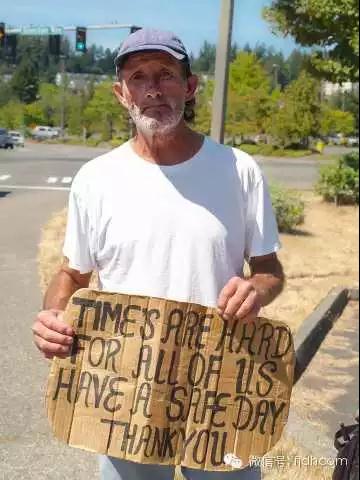 TIME'S ARE HARD
FOR ALL OF US
HAVE A SAFE DAY
THANK YOU
微信号: fjdhcom